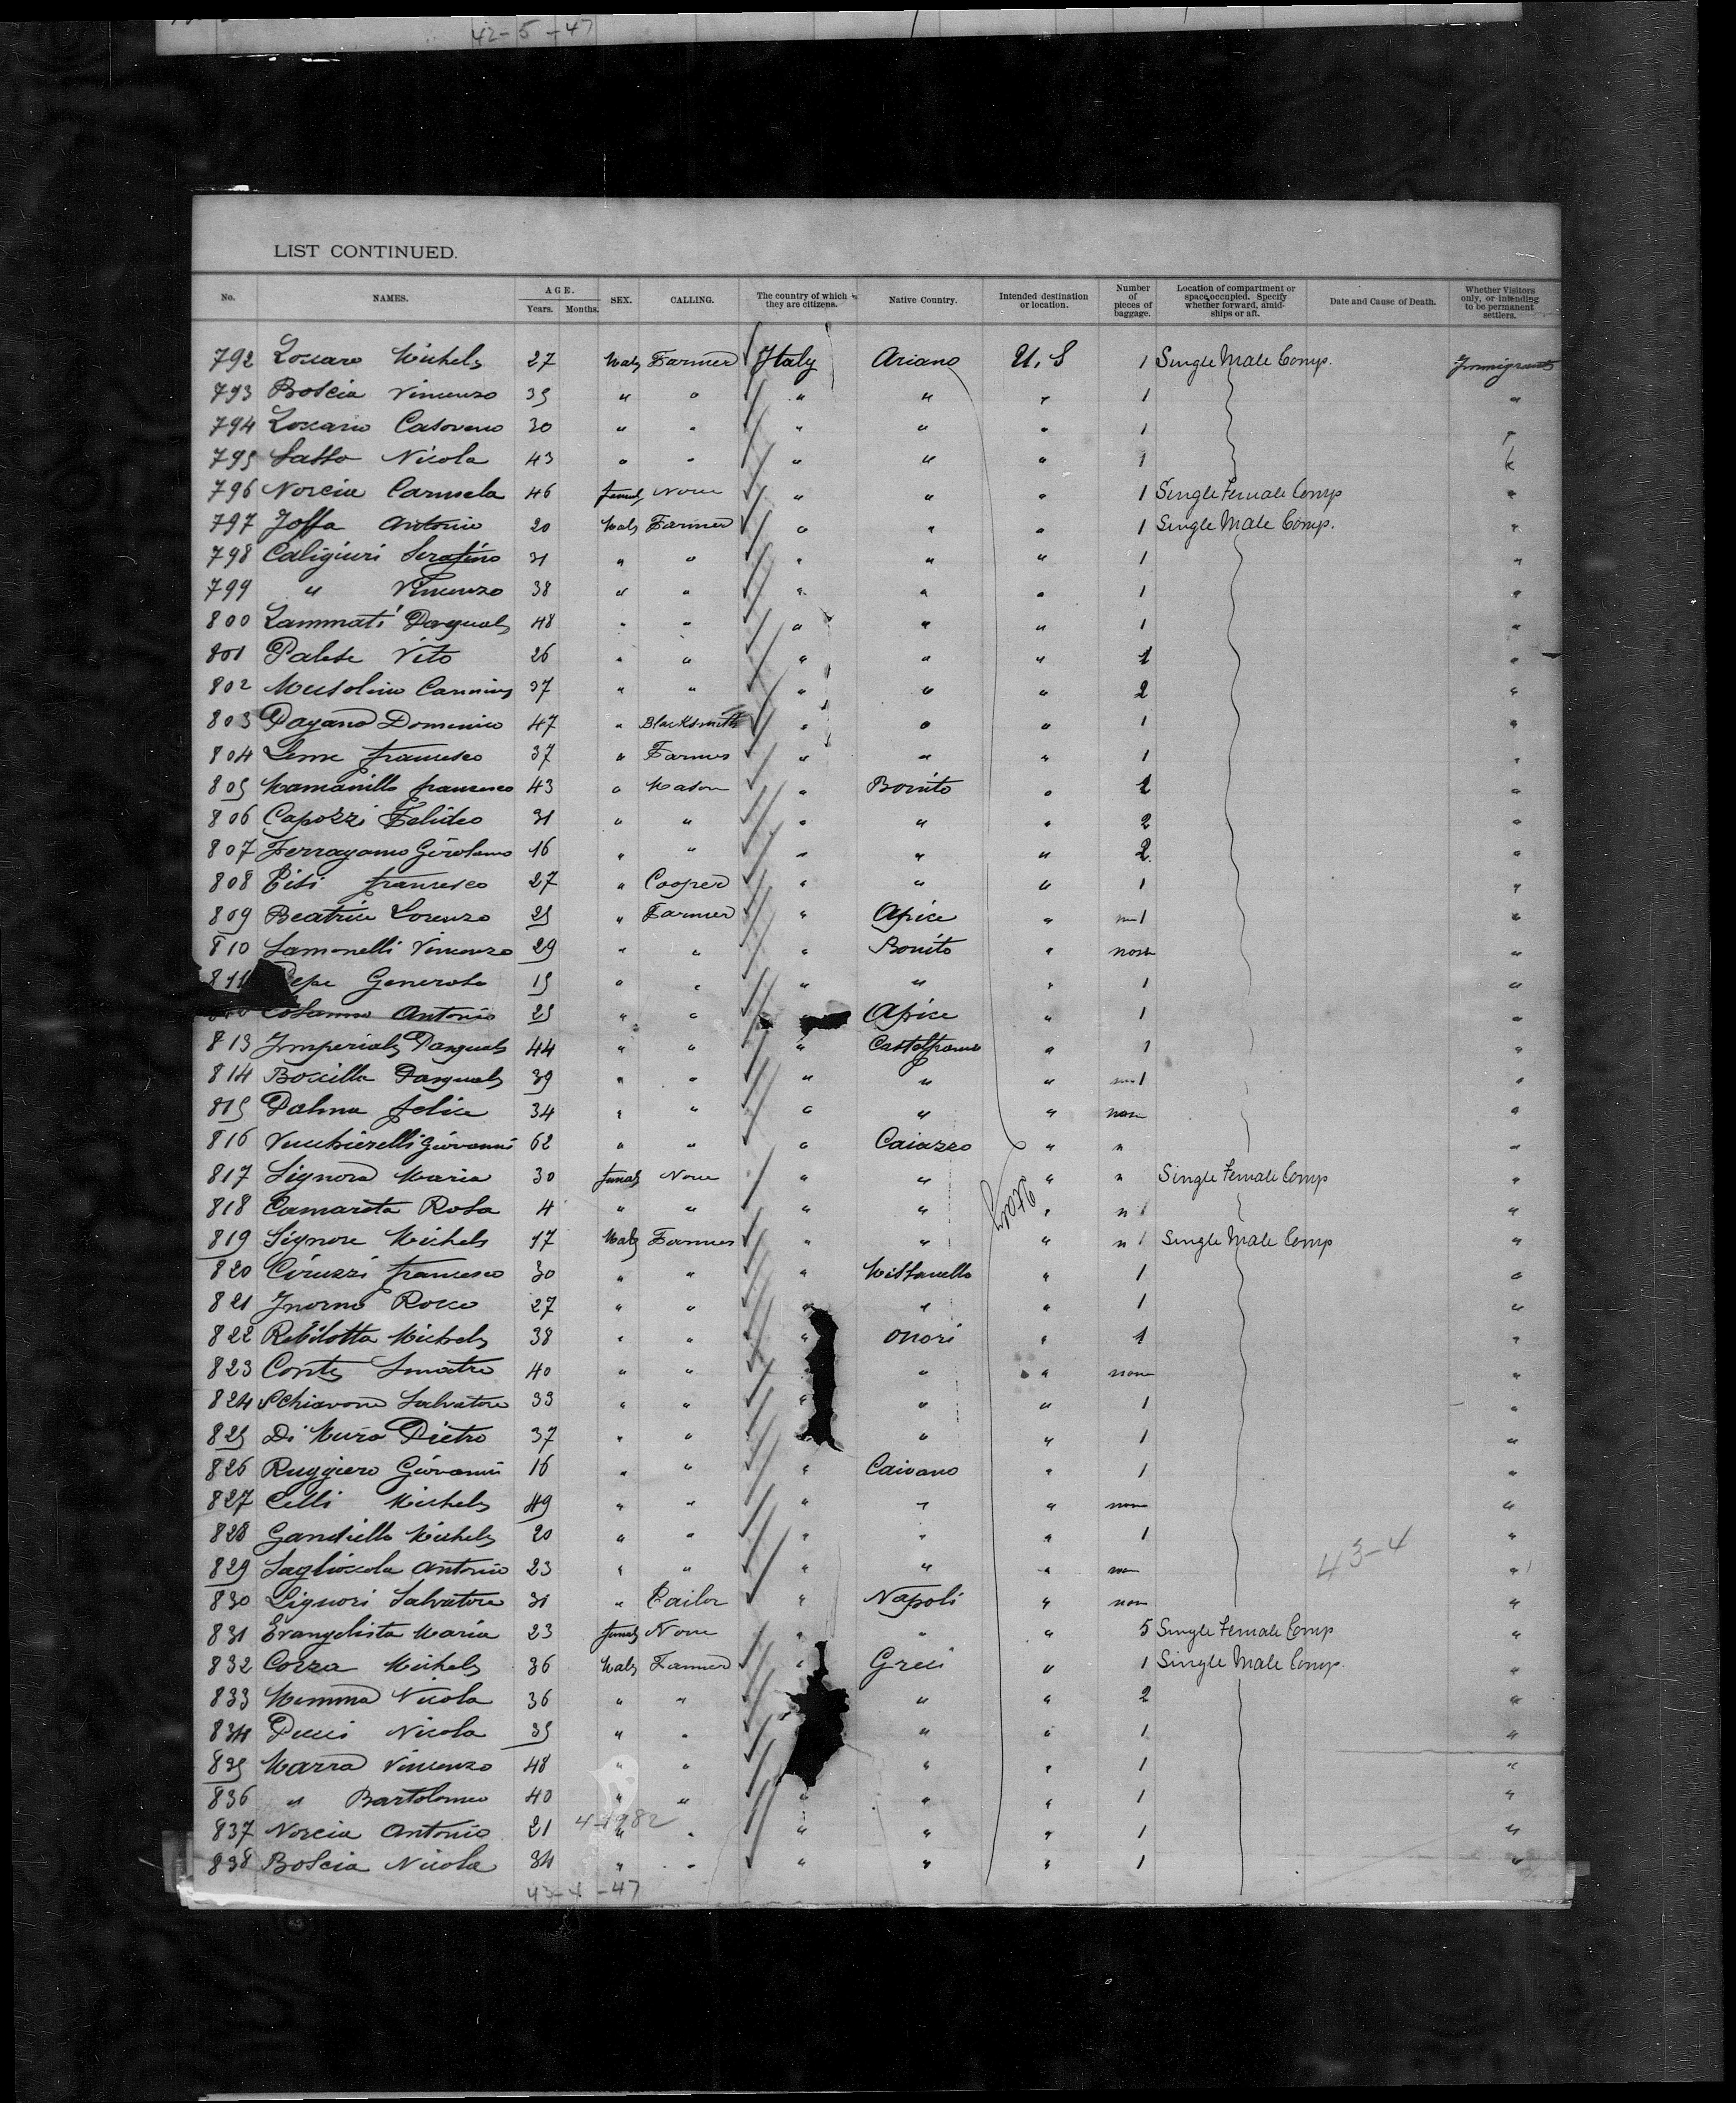 42-5-47
LIST CONTINUED.
No. NAMES. AGE. Years. Months. SEX. CALLING. The country of which they are citizens. Native Country. Intended destination or location. Number of pieces of baggage. Location of compartment or space occupied. Specify whether forward, amidships or aft. Date and Cause of Death. Whether Visitors only, or intending to be permanent settlers.
792 Michele 27 Male Farmer Italy Ariano U.S 1 Single Male Comp. Immigrants
793 Boscia Vincenzo 35 " " " " " 1 "
794 30 " " " " " 1 "
795 Sasso Nicola 43 " " " " " 1 "
796 Norcia Carmela 46 female None " " " 1 Single Female Comp "
797 Joffa Antonio 20 Male Farmer " " " 1 Single Male Comp. "
798 Caligiuri Serafino 31 " " " " " 1 "
799 " Vincenzo 38 " " " " " 1 "
800 Zammati Pasquale 48 " " " " " 1 "
801 Palese Vito 26 " " " " " 1 "
802 Musolino 37 " " " " " 2 "
803 Pagano Domenico 47 " Blacksmith " " " 1 "
804 francesco 37 " Farmer " " " 1 "
805 francesco 43 " Mason " Bonito " 1 "
806 Capozzi 31 " " " " " 2 "
807 Ferragamo Girolamo 16 " " " " " 2 "
808 francesco 27 " Cooper " " " 1 "
809 Beatrice Lorenzo 25 " Farmer " Apice " 1 "
810 Vincenzo 29 " " " Bonito " none "
811 Pepe Generoso 15 " " " " " 1 "
Antonio 25 " " " Apice " 1 "
813 Imperiale Pasquale 44 " " " " 1 "
814 Boccilla Pasquale 39 " " " " " 1 "
815 Palma felice 34 " " " " " none "
816 Vecchierelli Giovanni 62 " " " Caiazzo " " "
817 Signora Maria 30 female None " " " " Single Female Comp "
818 Camarota Rosa 4 " " " " " " 1 "
819 Signore Michele 17 Male Farmer " " " " 1 Single Male Comp "
820 Ciruzzi francesco 30 " " " Missanello " 1 "
821 Rocco 27 " " " " " 1 "
822 Rebilotta Michele 38 " " " Onori " 1 "
823 Conte 40 " " " " none "
824 Schiavone Salvatore 33 " " " " " 1 "
825 Di Muro Pietro 37 " " " " 1 "
826 Ruggiero Giovanni 16 " " " Caivano " 1 "
827 Celli Michele 49 " " " " " none "
828 Michele 20 " " " " " 1 "
829 Saglioccola Antonio 23 " " " " " none 43-4 "
830 Liguori Salvatore 31 " Tailor " Napoli " none "
831 Evangelista Maria 23 female None " " " 5 Single Female Comp "
832 Corza Michele 36 Male Farmer " Greci " 1 Single Male Comp. "
833 Nicola 36 " " " " 2 "
834 Pucci Nicola 35 " " " " 1 "
835 Marra Vincenzo 48 " " " " 1 "
836 " Bartolomeo 40 " " " " " 1 "
837 Norcia Antonio 21 " " " " " 1 "
838 Boscia Nicola 34 " " " " " 1 "
43-4-47